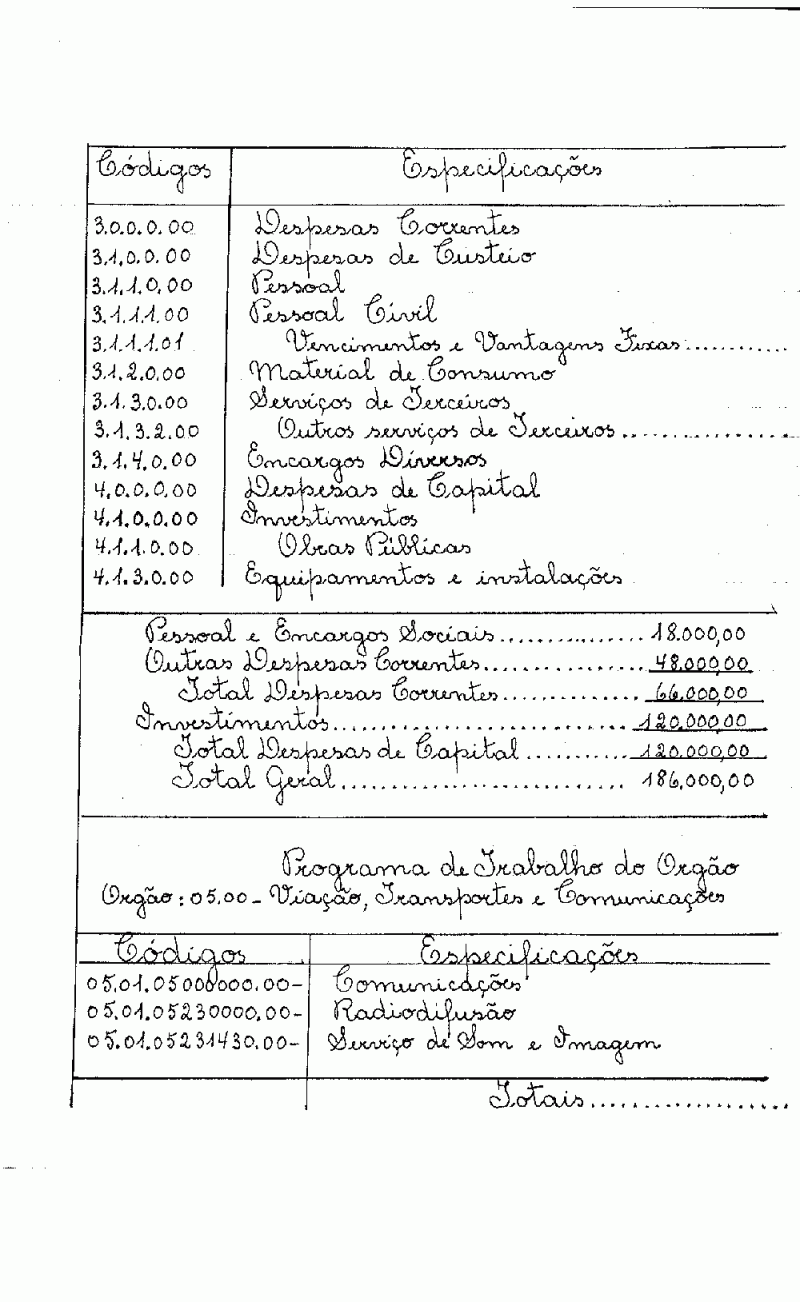 Códigos Especificações
3.0.0.0.00 Despesas Correntes
3.1.0.0.00 Despesas de Custeio
3.1.1.0.00 Pessoal
3.1.1.1.00 Pessoal Civil
3.1.1.1.01 Vencimentos e Vantagens Fixas...........
3.1.2.0.00 Material de Consumo
3.1.3.0.00 Serviços de Terceiros
3.1.3.2.00 Outros serviços de Terceiros..................
3.1.4.0.00 Encargos Diversos
4.0.0.0.00 Despesas de Capital
4.1.0.0.00 Investimentos
4.1.1.0.00 Obras Públicas
4.1.3.0.00 Equipamentos e instalações
Pessoal e Encargos Sociais............... 18.000,00
Outras Despesas Correntes................. 48.000,00
Total Despesas Correntes.............. 66.000,00
Investimentos............................. 120.000,00
Total Despesas de Capital........... 120.000,00
Total Geral............................ 186.000,00
Programa de Trabalho do Orgão
Orgão: 05.00 - Viação, Transportes e Comunicações
Códigos Especificações
05.01.05000000.00- Comunicações
05.01.05230000.00- Radiodifusão
05.01.05231430.00- Serviço de Som e Imagem
Totais....................